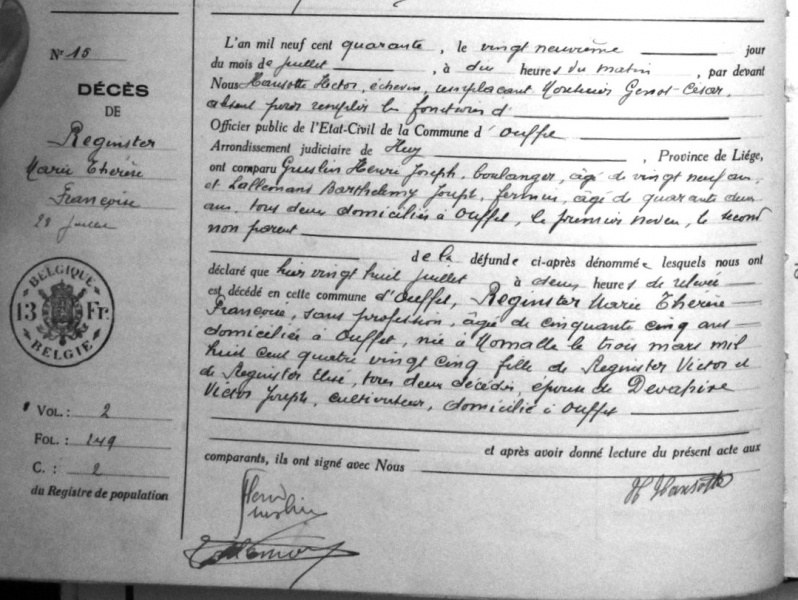 Nº 15
DÉCÈS
DE
Reginster
Marie Thérèse
Françoise
28 juillet
BELGIQUE
13 Fr.
BELGIE
VOL.: 2
FOL.: 149
C. : 2
du Registre de population
L'an mil neuf cent quarante, le vingt neuvième jour
du mois de juillet, à dix heures du matin, par devant
Nous Hansotte Hector, échevin, remplaçant Monsieur Genot-Cesar,
absent pour remplir les fonctions d'
Officier public de l'Etat-Civil de la Commune d'Ouffet
Arrondissement judiciaire de Huy, Province de Liége,
ont comparu Henri Joseph, boulanger, âgé de vingt neuf ans,
et Lallemans Barthelemy Joseph, fermier, âgé de quarante deux
ans, tous deux domiciliés à Ouffet, le premier neveu, le second
non parent
de la défunte ci-après dénommée lesquels nous ont
déclaré que hier vingt huit juillet à deux heures de relevée
est décédé en cette commune d'Ouffet, Reginster Marie Thérèse
Françoise, sans profession, âgée de cinquante cinq ans
domiciliée à Ouffet, née à Momalle le trois mars mil
huit cent quatre vingt cinq fille de Reginster Victor et
de Reginster Elisé, tous deux décédés, épouse de Devahive
Victor Joseph, cultivateur, domicilié à Ouffet
et après avoir donné lecture du présent acte aux
comparants, ils ont signé avec Nous
Henri
H Hansotte